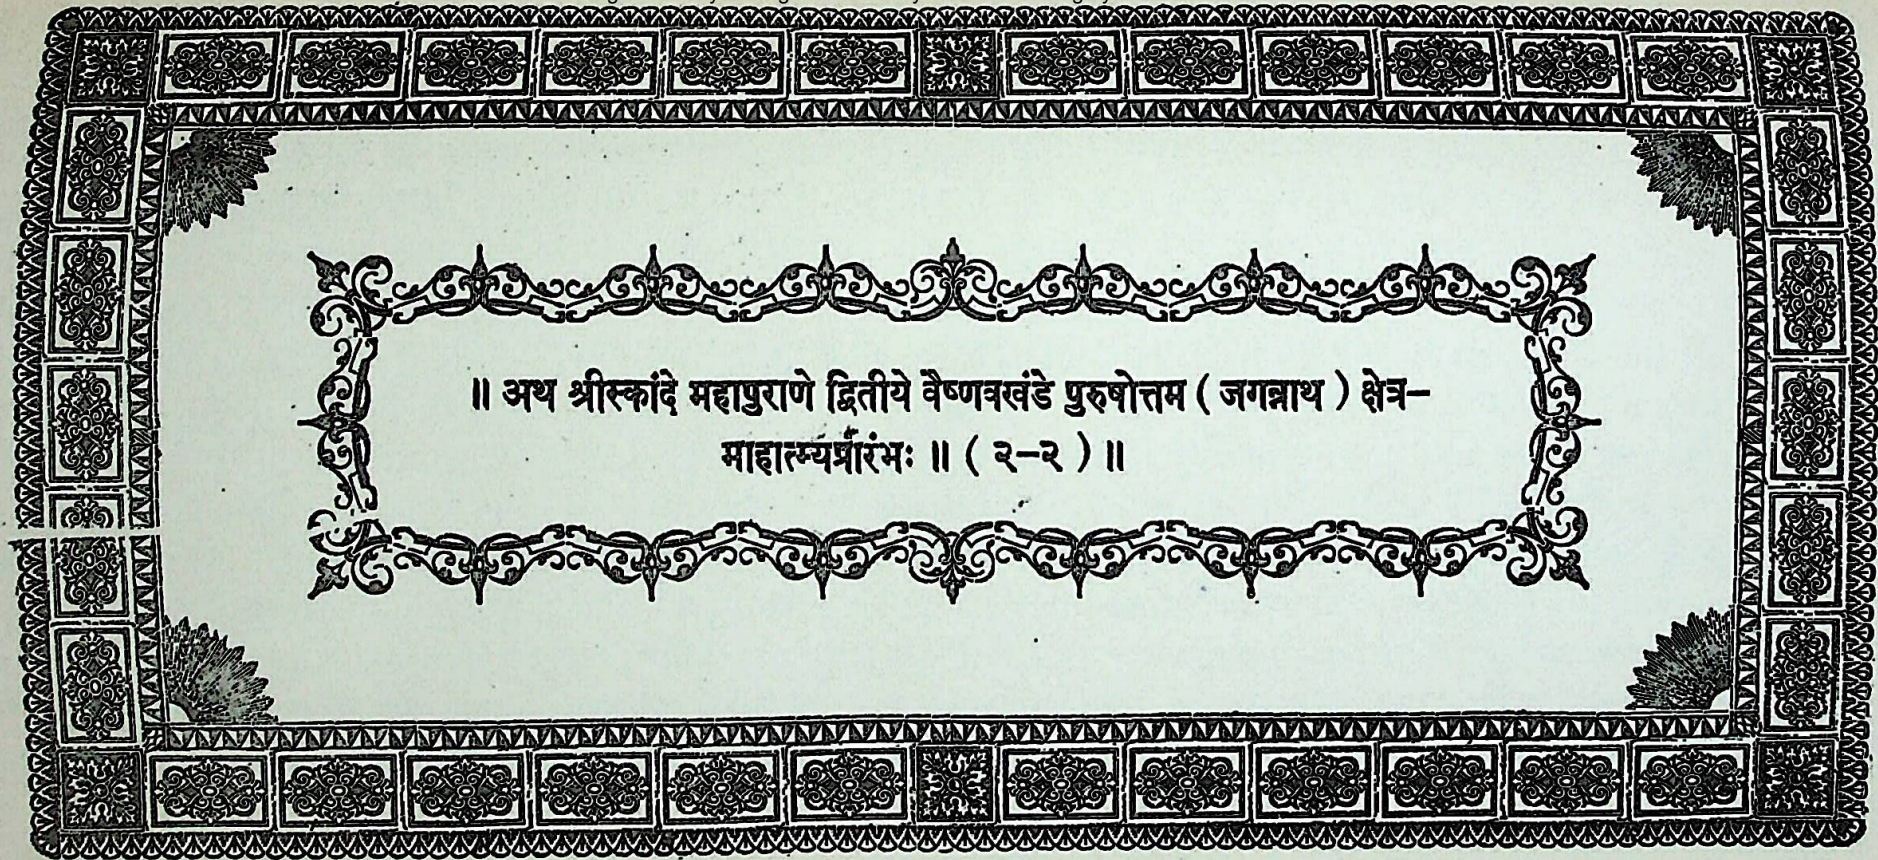 ॥ अथ श्रीस्कांदे महापुराणे द्वितीये वैष्णवखंडे पुरुषोत्तम ( जगन्नाथ ) क्षेत्र-
माहात्म्यप्रारंभः ॥ ( २-२ ) ॥